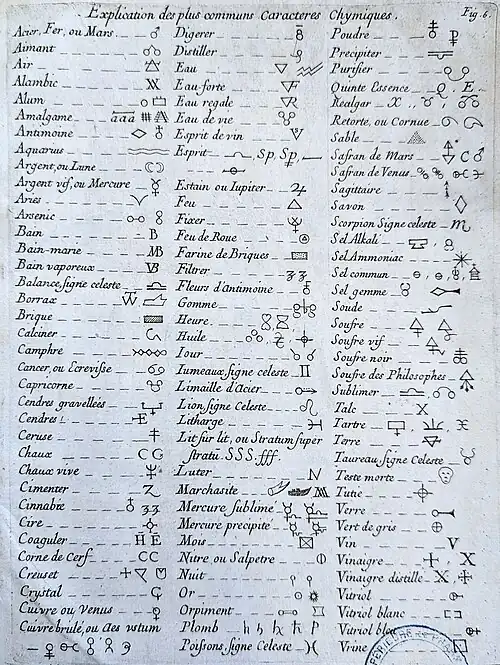 Explication des plus communs Caracteres Chymiques. Fig. 6.
Acier, Fer, ou Mars
Aimant
Air
Alambic
Alum
Amalgame aaa
Antimoine
Aquarius
Argent, ou Lune
Argent vif, ou Mercure
Aries
Arsenic
Bain B
Bain-marie MB
Bain vaporeux VB
Balance, signe celeste
Borrax
Brique
Calciner
Camphre
Cancer, ou Ecrevisse
Capricorne
Cendres gravellées
Cendres E
Ceruse
Chaux C G
Chaux vive
Cimenter Z
Cinnabre
Cire
Coaguler H E
Corne de Cerf CC
Creuset
Crystal
Cuivre ou Venus
Cuivre brulé, ou aes ustum
Digerer
Distiller
Eau
Eau-forte
Eau regale
Eau de vie
Esprit de vin
Esprit Sp. Sp.
Estain ou Iupiter
Feu
Fixer
Feu de Roue
Farine de Briques
Filtrer
Fleurs d'Antimoine
Gomme
Heure
Huile
Iour
Iumeaux signe celeste
Limaille d'Acier
Lion signe Celeste
Litharge
Lit sur lit, ou Stratum super
stratũ. SSS. fff
Luter
Marchasite
Mercure sublimé
Mercure precipité
Mois
Nitre ou Salpetre
Nuit
Or
Orpiment
Plomb
Poissons signe Celeste
Poudre
Precipiter
Purifier
Quinte Essence Q. E.
Realgar
Retorte, ou Cornue
Sable
Safran de Mars
Safran de Venus
Sagittaire
Savon
Scorpion Signe celeste
Sel Alkali
Sel Ammoniac
Sel commun
Sel gemme
Soude
Soufre
Soufre vif
Soufre noir
Soufre des Philosophes
Sublimer
Talc X
Tartre
Terre
Taureau signe Celeste
Teste morte
Tutie
Verre
Vert de gris
Vin V
Vinaigre
Vinaigre distille
Vitriol
Vitriol blanc
Vitriol bleu
Vrine